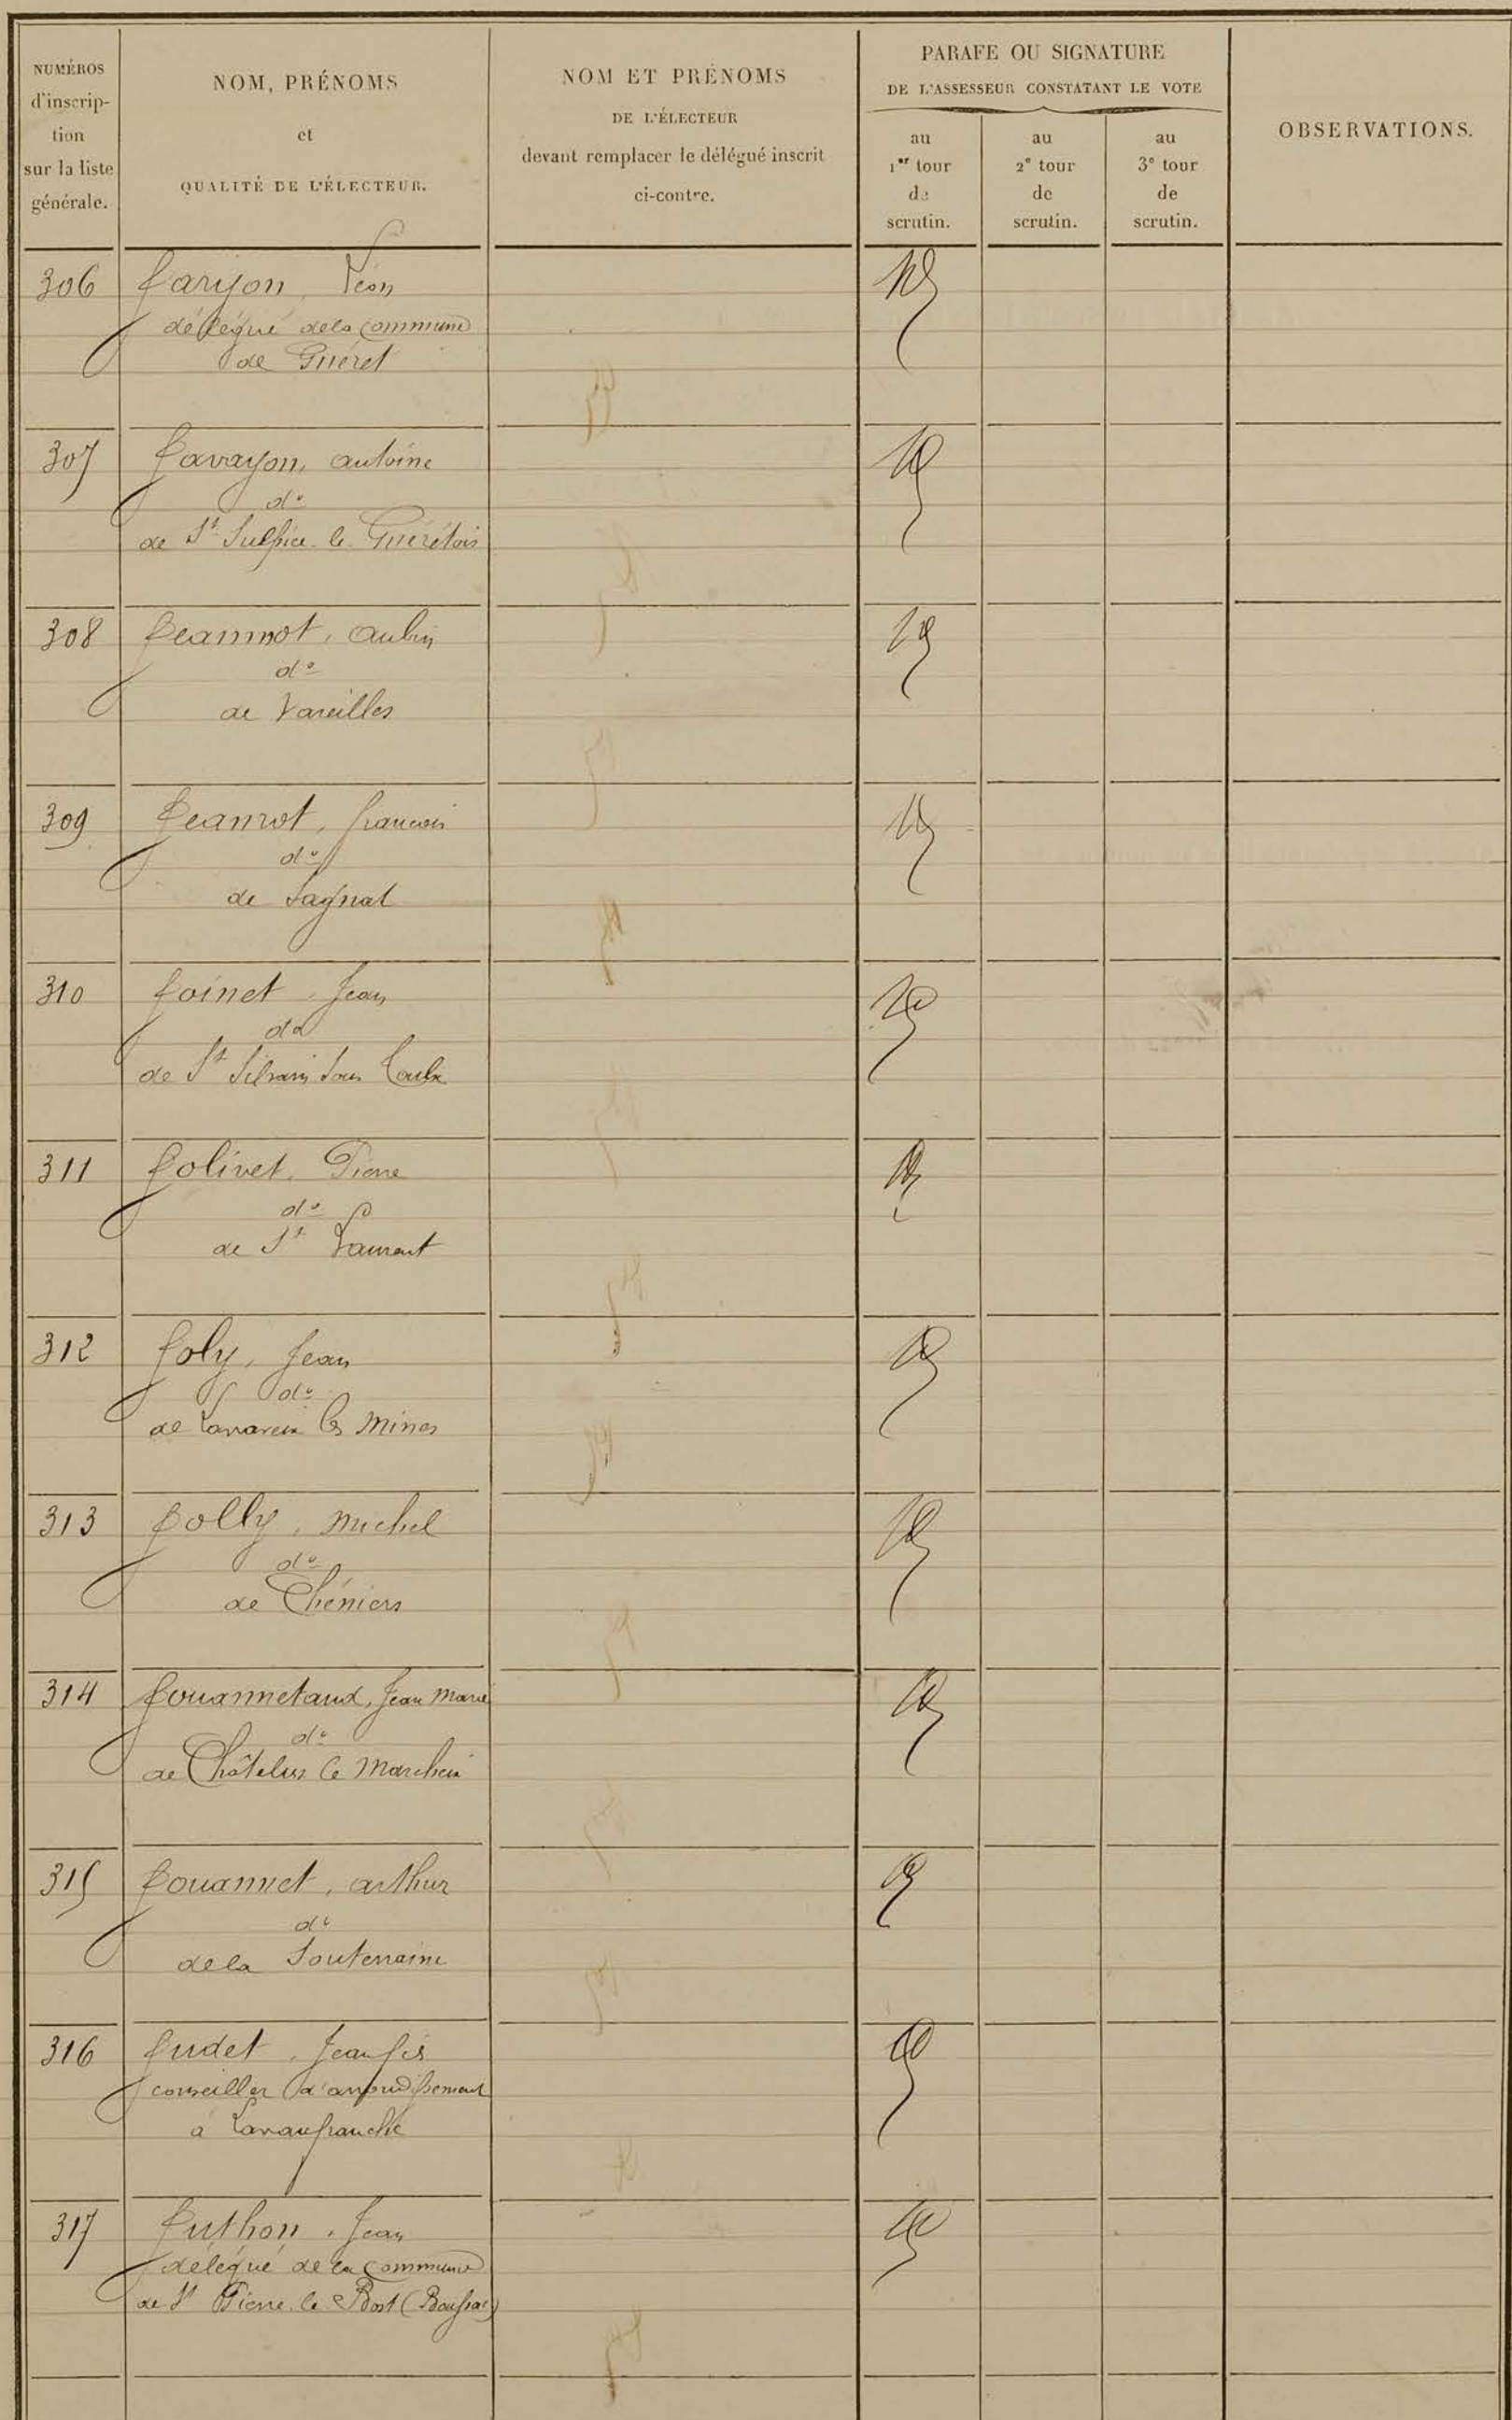 NUMÉROS
d'inscrip-
tion
sur la liste
générale.
NOM, PRÉNOMS
et
QUALITÉ DE L'ÉLECTEUR.
NOM ET PRÉNOMS
DE L'ÉLECTEUR
devant remplacer le délégué inscrit
ci-contre.
PARAFE OU SIGNATURE
DE L'ASSESSEUR CONSTATANT LE VOTE
au
1er tour
de
scrutin.
au
2e tour
de
scrutin.
au
3e tour
de
scrutin.
OBSERVATIONS.
306 Jarijon, Léon
délégué de la commune
de Guéret
307 Javayon, antoine
do
de St Sulpice le Guérétois
308 Jeannot, aubin
do
de Vareilles
309 Jeanrot, francois
do
de Sagnat
310 Joinet, Jean
do
de St Silvain sous Toulx
311 Jolivet, Pierre
do
de St Laurent
312 Joly, Jean
do
de Lavaveix les Mines
313 Jolly, Michel
do
de Chéniers
314 Jouannetaud, Jean Marie
do
de Châtelus le Marcheix
315 Jouannet, arthur
do
de la Souterraine
316 Judet, Jean fils
conseiller d'arrondissement
à Lavaufranche
317 Juthon, Jean
délégué de la commune
de St Pierre le Bost (Boussac)